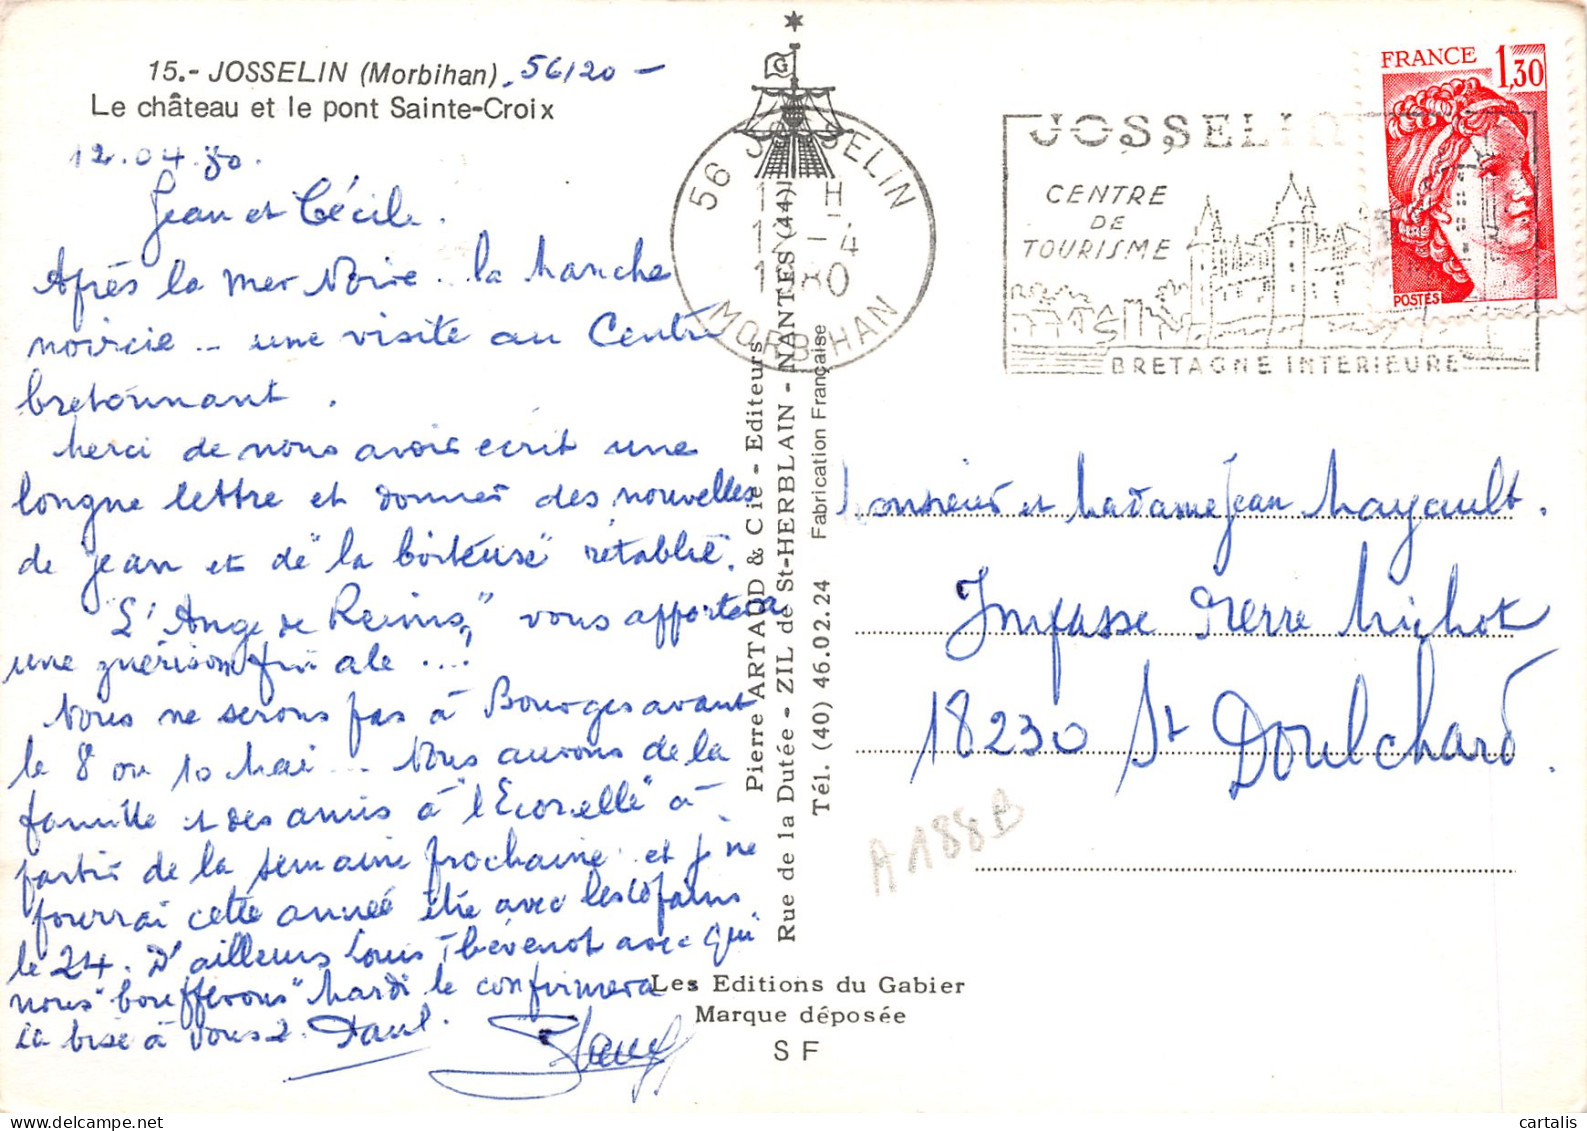 15.- JOSSELIN (Morbihan) 56120 -
Le château et le pont Sainte-Croix
12.04.80.
Jean et Cécile.
Après la mer Noire.. la Manche
noircie .. une visite au Centre
bretonnant.
Merci de nous avoir écrit une
longue lettre et donner des nouvelles
de Jean et de "la boiteuse" rétablie.
"L'Ange de Reims" vous apportera
une guérison finale ....
Nous ne serons pas à Bourges avant
le 8 ou 10 Mai ... Nous aurons de la
famille et des amis à "l'Ecorelle" à
partir de la semaine prochaine et je ne
pourrai cette année être avec les copains
le 24. D'ailleurs Louis Thévenot avec qui
nous "boufferons" Mardi le confirmera
la bise à vous 2. Paul.
G
56 JOSSELIN
H
-4
1980
MORBIHAN
Pierre ARTAUD & Cie - Editeurs
Rue de la Dutée - ZIL de St-HERBLAIN - NANTES (44)
Tél. (40) 46.02.24 Fabrication Française
Les Editions du Gabier
Marque déposée
SF
JOSSELIN
CENTRE
DE
TOURISME
BRETAGNE INTERIEURE
FRANCE 1,30
POSTES
Monsieur et Madame Jean Mayault.
Impasse Pierre Michot
18230 St Doulchard.
A188B
cartalis